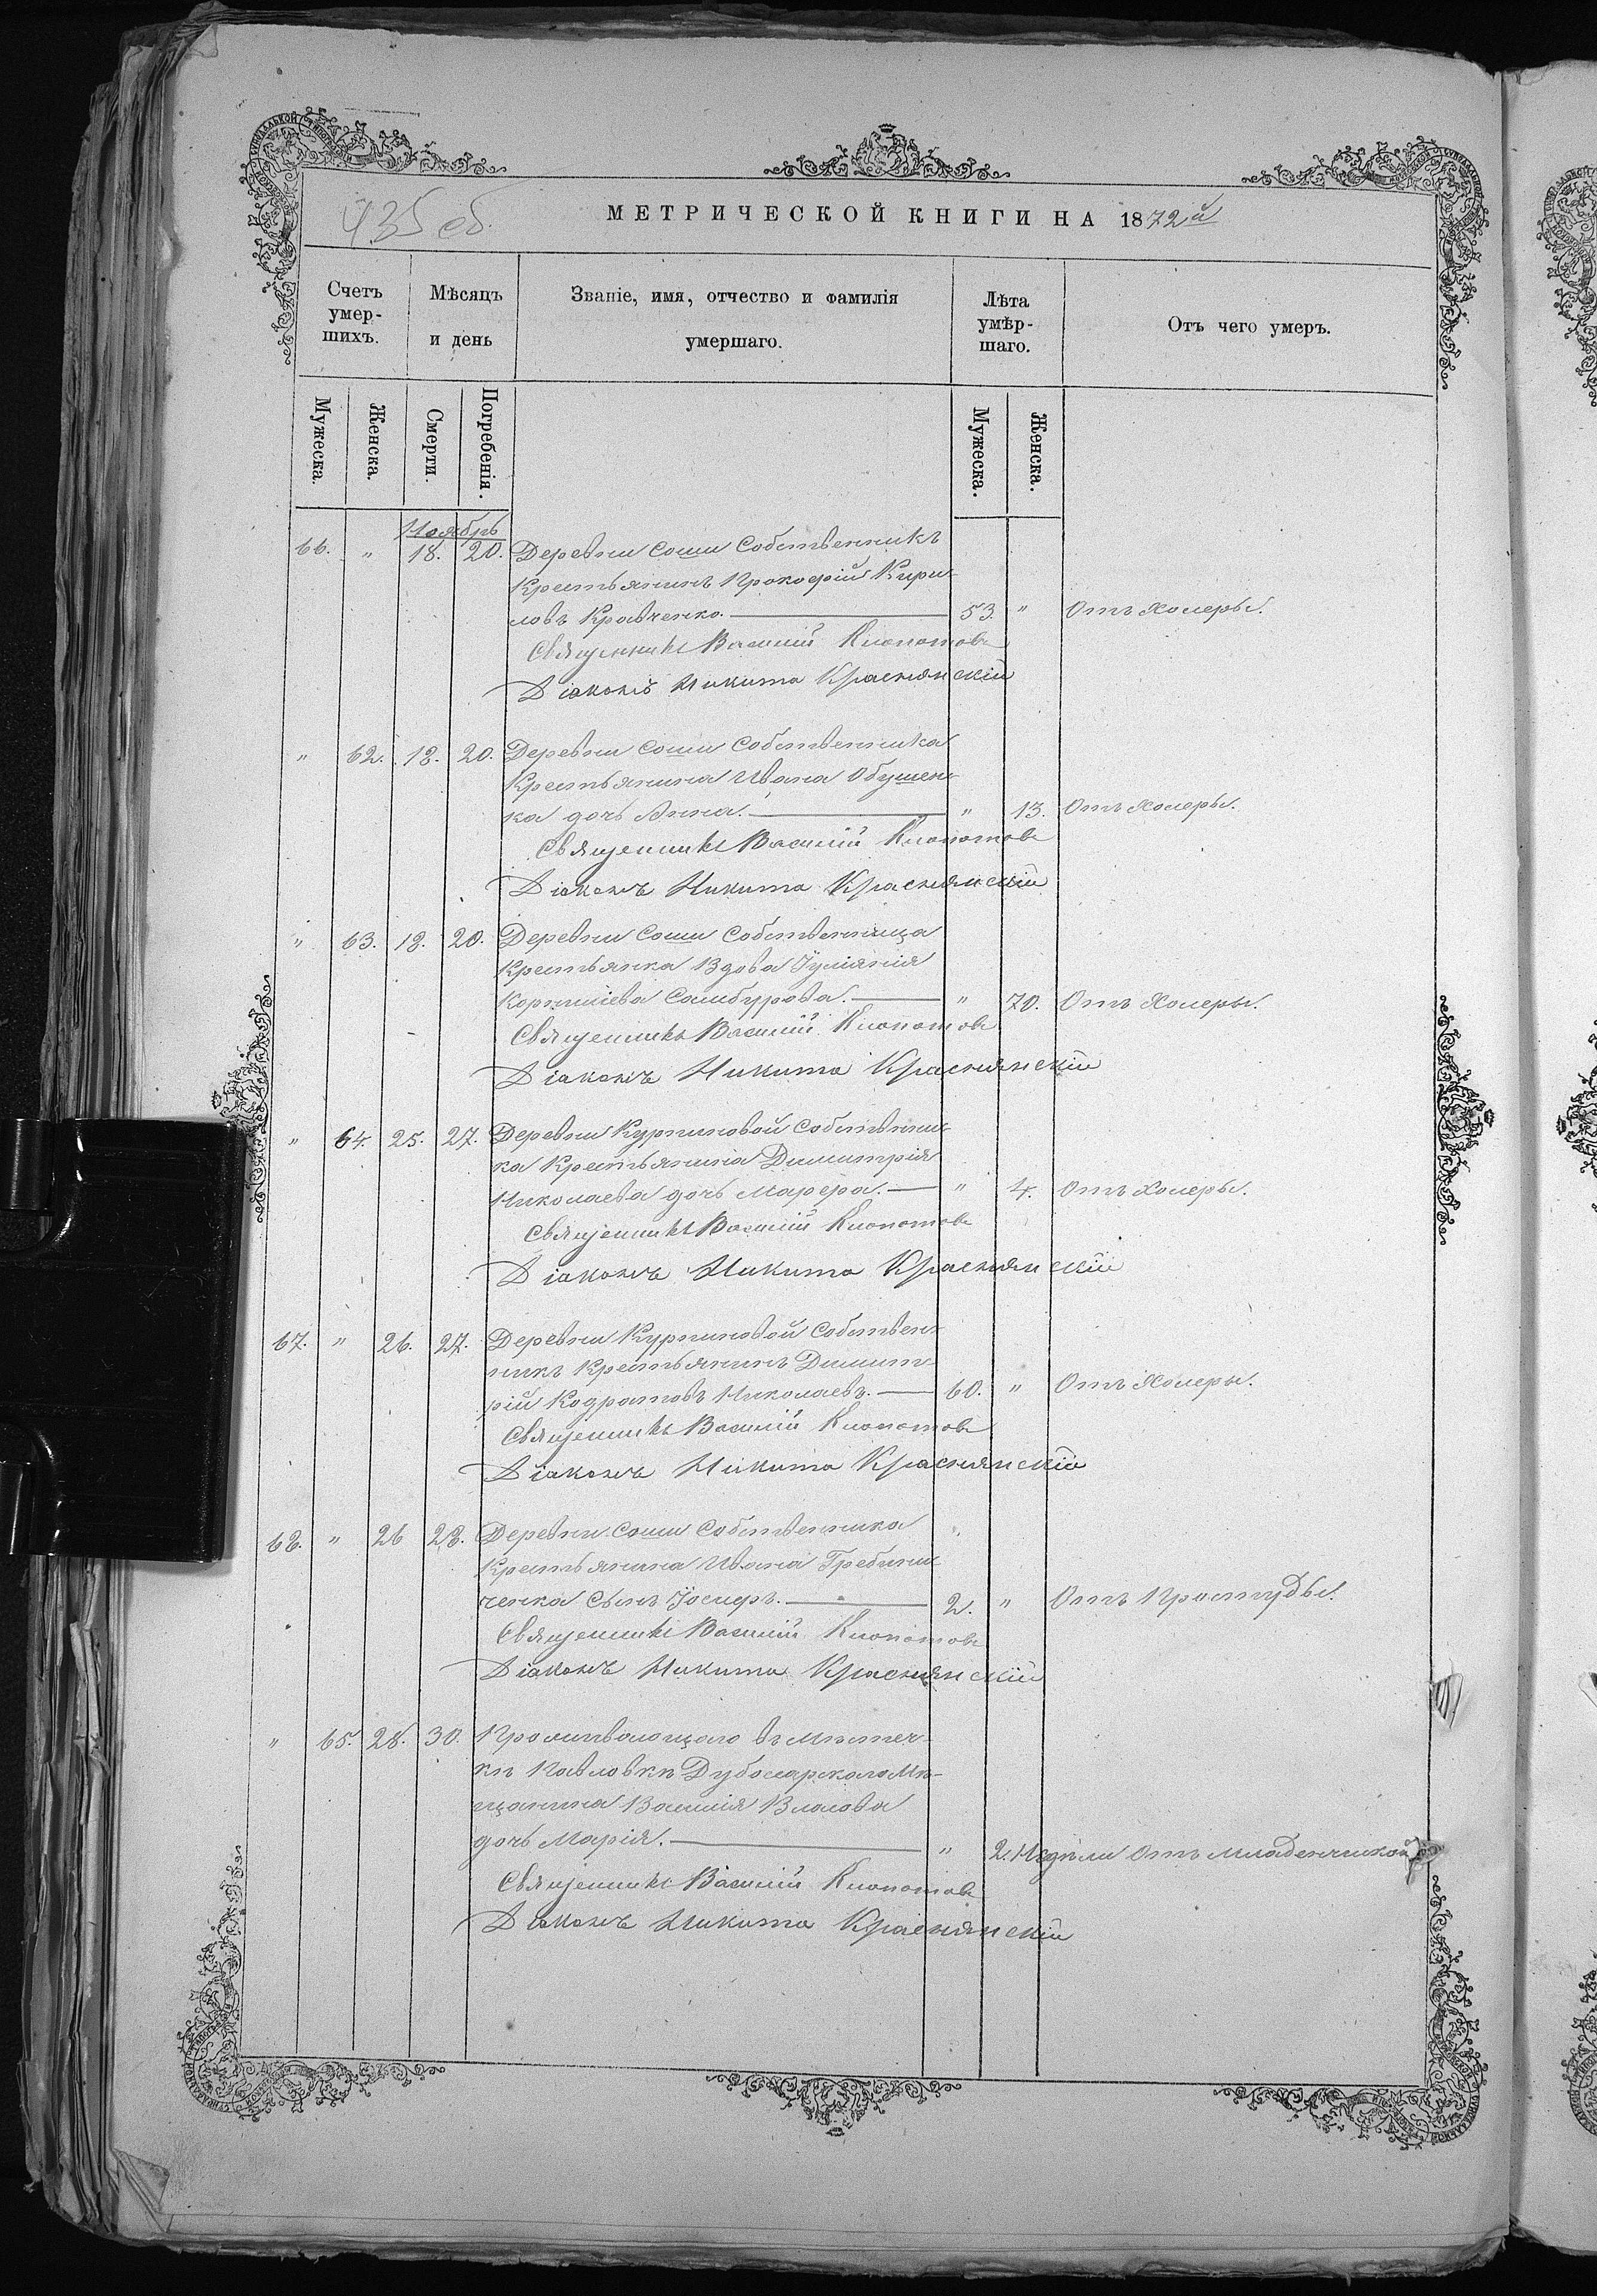 435 об.
МЕТРИЧЕСКОЙ КНИГИ НА 1872й
Счетъ умер-шихъ.
Мѣсяцъ и день
Званіе, имя, отчество и фамилія умершаго.
Лѣта умѣр-шаго.
Отъ чего умеръ.
Мужеска.
Женска.
Смерти.
Погребенія.
Мужеска.
Женска.
Ноябрь
66. " 18. 20. Деревни Соши Собственникъ
Крестьянинъ Прокофій Кири-
ловъ Кравченко. 53. " Отъ Холеры.
Священникъ Василій Клопотовъ
Діаконъ Никита Краснянскій
" 62. 18. 20. Деревни Соши Собственника
Крестьянина Ивана Обушен-
ка дочь Анна. " 13. Отъ Холеры.
Священникъ Василій Клопотовъ
Діаконъ Никита Краснянскій
" 63. 18. 20. Деревни Соши Собственница
Крестьянка Вдова Іуліянія
Корниліева Самбурова. " 70. Отъ Холеры.
Священникъ Василій Клопотовъ
Діаконъ Никита Краснянскій
" 64. 25. 27. Деревни Курпиновой Собственни-
ка Крестьянина Димитрія
Николаева дочь Марфра. " 4. Отъ Холеры.
Священникъ Василій Клопотовъ
Діаконъ Никита Краснянскій
67. " 26. 27. Деревни Курпиновой Собствен-
никъ Крестьянинъ Димит-
рій Кодратовъ Николаевъ. 60. " Отъ Холеры.
Священникъ Василій Клопотовъ
Діаконъ Никита Краснянскій
68. " 26 28. Деревни Соши Собственника
Крестьянина Ивана Гребинни-
ченка Сынъ Іосифъ. 2. " Отъ Простуды.
Священникъ Василій Клопотовъ
Діаконъ Никита Краснянскій
" 65. 28. 30. Проживающаго въ Мѣстеч-
кѣ Павловкѣ Дубосарскаго Мѣ-
щанина Василія Власова
дочь Марія. " 2. Недѣли Отъ Младенческой
Священникъ Василій Клопотовъ
Діаконъ Никита Краснянскій